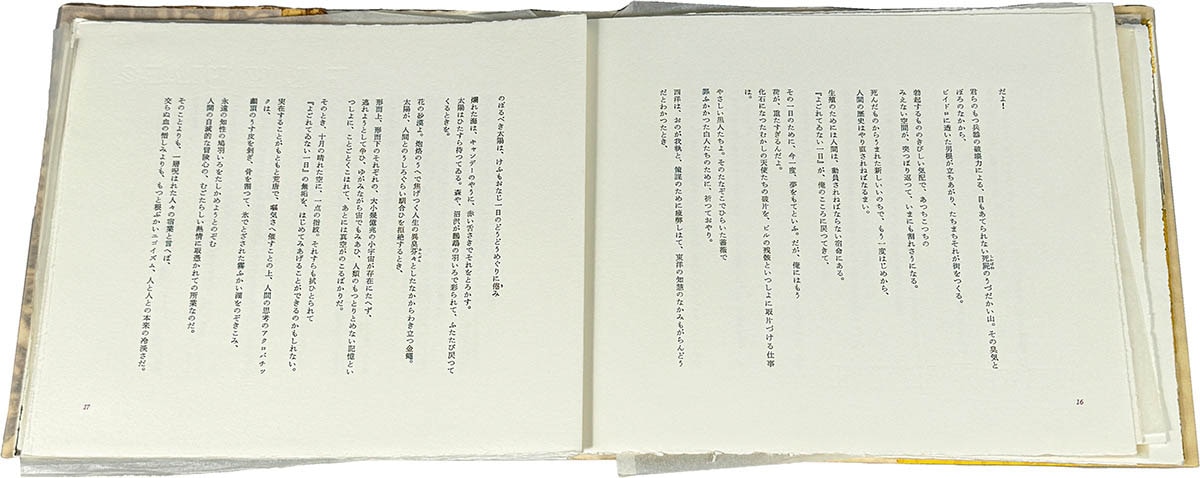 だよ!
君らのもつ兵器の破壊力による、目もあてられない死屍のうづだかい山。その臭気と
ぼろのなかから、
ビイドロに透いた男根が立ちあがり、たちまちそれが街をつくる。
勃起するもののきびしい気配で、あつちこつちの
みえない空間が、突つぱり返つて、いまにも割れさうになる。
死んだものからうまれた新しいいのちで、もう一度はじめから、
人間の歴史はやり直されねばなるまい。
生殖のためには人間は、動員されねばならない宿命にある。
『よごれてゐない一日』が、俺のこころに戻つてきて、
その一日のために、今一度、夢をもてといふ。だが、俺にはもう
荷が、重たすぎるんだよ。
化石になつたむかしの天使たちの破片を、ビルの残骸といつしよに取片づける仕事
は。
やさしい黒人たちよ。そのたなぞこでひらいた薔薇で
罪ふかかつた白人たちのために、祈つておやり。
西洋は、おのが我執と、陰謀のために疲弊しはて、東洋の知慧のなかみもがらんどう
だとわかつたとき、
16
のぼるべき太陽は、けふもおなじ一日のどうどうめぐりに倦み
爛れた海は、キャンデーのやうに、赤い舌さきでそれをとろかす。
太陽はひたすら待つてゐる。森や、沼沢が鸚鵡の羽いろで彩られて、ふたたび戻つて
くるときを。
花の砂漠よ。炮烙のうへで焦げつく人生の異臭芬々としたなかからわき立つ金蠅。
太陽が、人間とのうしろぐらい馴合ひを拒絶するとき、
形而上、形而下のそれぞれの、大小幾億兆の小宇宙が存在にたへず、
逃れようとして争ひ、ゆがみながら宙でもみあひ、人類のもつとりとめない記憶とい
つしよに、ことごとくこはれて、あとには真空がのこるばかりだ。
そのとき、十月の晴れた空に、一点の指紋。それすらも拭ひとられて
『よごれてゐない一日』の無垢を、はじめてみあげることができるのかもしれない。
実在することがもともと荒唐で、嘔気さへ催すことの上、人間の思考のアクロバチツ
クは、
顱頂のうす皮を剥ぎ、骨を溜つて、氷でとざされた霧ふかい湖をのぞきこみ、
永遠の知性の鳩羽いろをたしかめようとのぞむ
人間の自滅的な冒険心の、むごたらしい熱情に取憑かれての所業なのだ。
そのことよりも、一層呪はれた人々の宿業と言へば、
交らぬ血の憎しみよりも、もつと根ぶかいエゴイズム、人と人との本来の冷淡さだ。
17